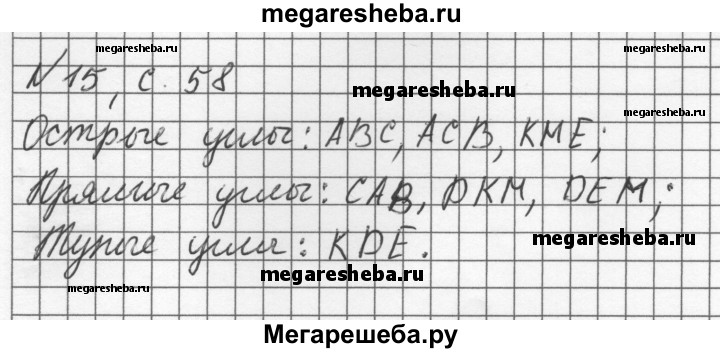 megaresheba.ru
megaresheba.ru megaresheba.ru
№15, с. 58
megaresheba.ru
megaresheba.ru
Острые углы: ABC, ACB, KME;
Прямые углы: CAB, DKM, DEM;
Тупые углы: KDE.
megaresheba.ru
megaresheba.ru
megaresheba.ru megaresheba.ru
Мегарешеба.ру